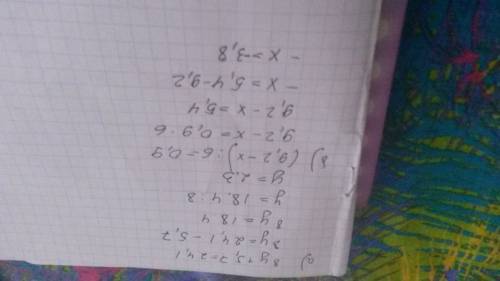 а) 8y+5,7=24,1
8y=24,1-5,7
8y=18,4
y=18,4:8
y=2,3
б) (9,2-x):6=0,9
9,2-x=0,9·6
9,2-x=5,4
-x=5,4-9,2
-x=-3,8